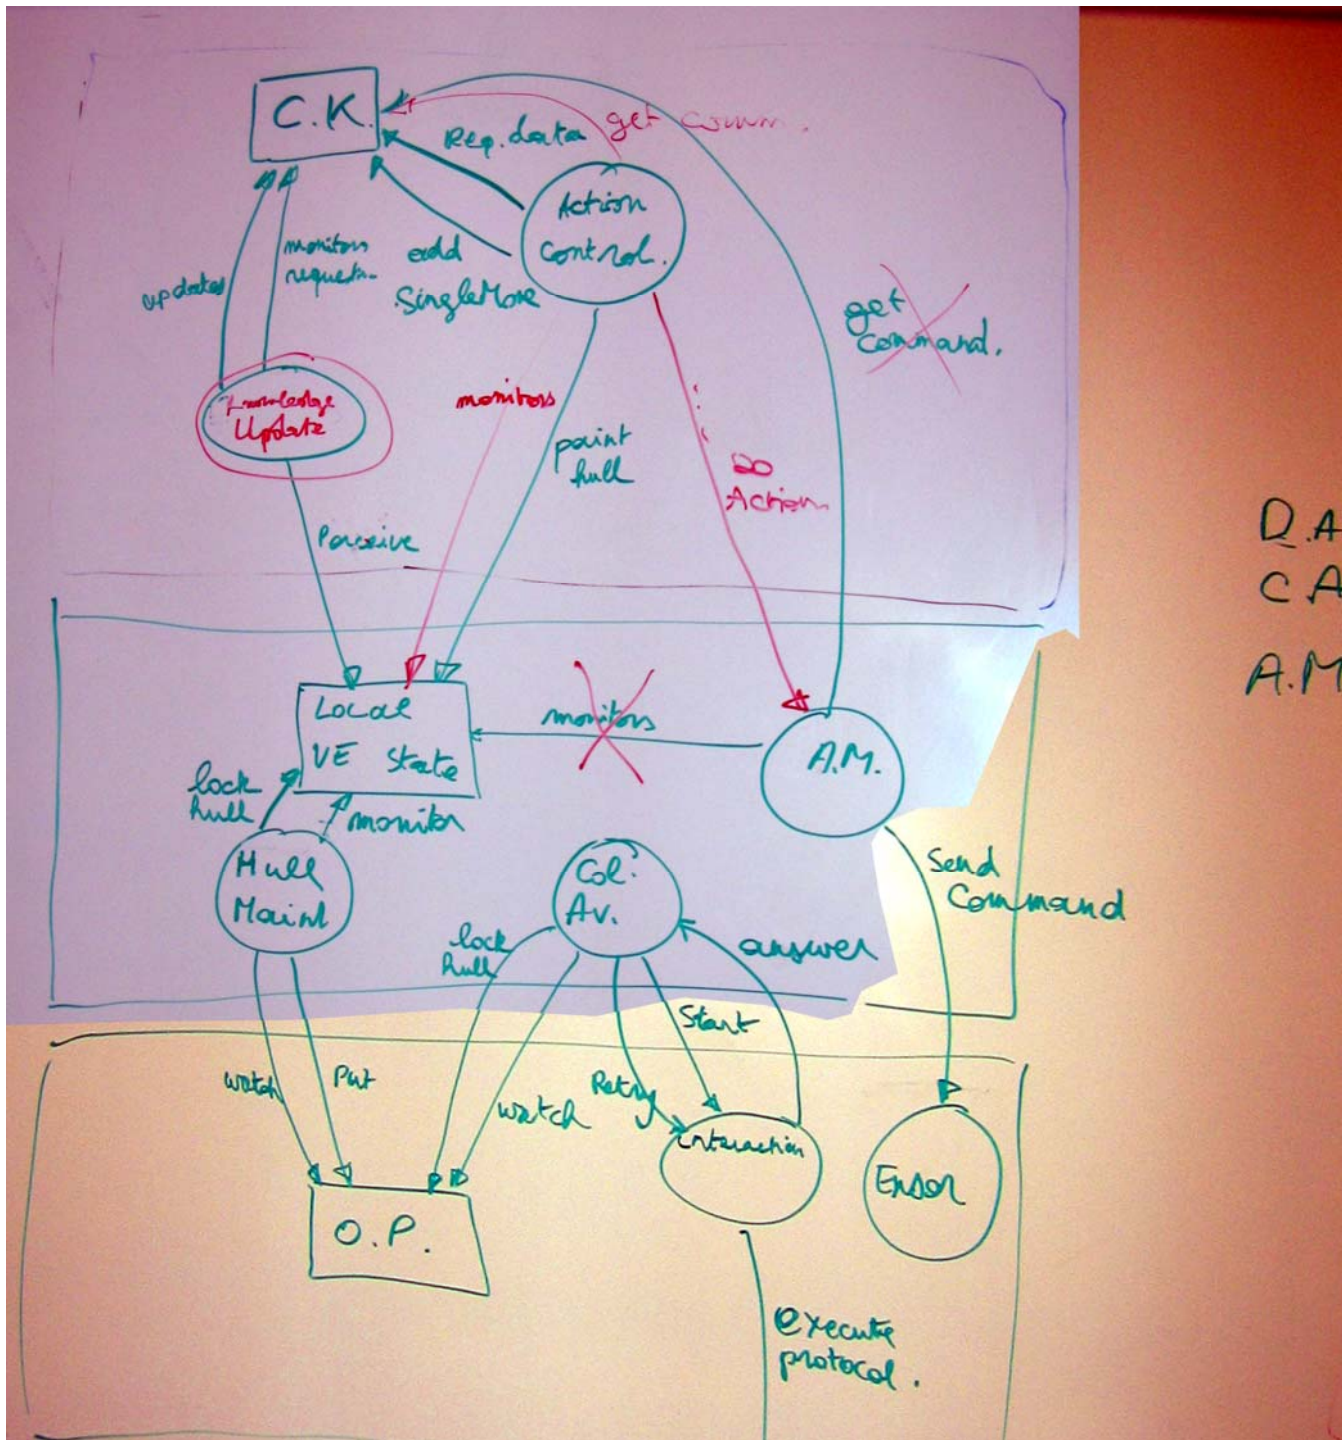 C.K.
Req. data
get comm.
Action
Control.
updates
monitors
add
SingleMove
get
Command.
Knowledge
Update
monitors
paint
hull
DO
Action
Perceive
D.A
C A
A.M
Local
VE State
monitors
A.M.
lock
hull
monitor
Hull
Maint
Col.
Av.
lock
hull
answer
Send
Command
Start
watch
Put
Retry
watch
Interaction
Ensor
O.P.
execute
protocol.